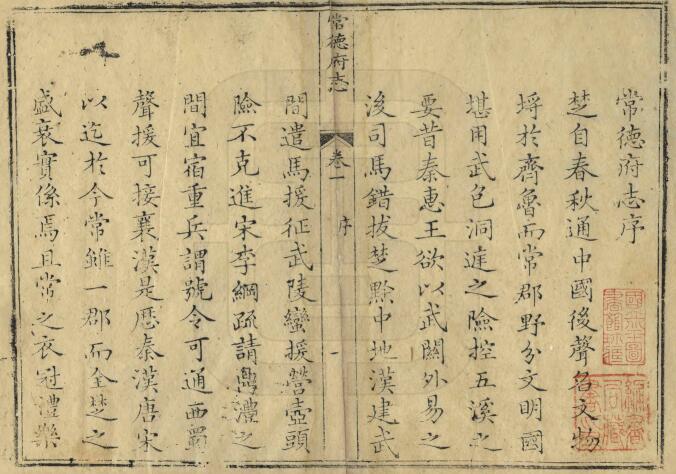 常德府志序
楚自春秋通中國後聲名文物
埒於齊魯而常郡野分文明國
堪用武包洞庭之險控五溪之
要昔秦惠王欲以武關外易之
後司馬錯拔楚黔中地漢建武
常德府志
卷一
序
一
間遣馬援征武陵蠻援營壺頭
險不克進宋李綱疏請鼎澧之
間宜宿重兵謂號令可通西蜀
聲援可接襄漢是歷秦漢唐宋
以迄於今常雖一郡而全楚之
盛衰實係焉且常之衣冠禮樂